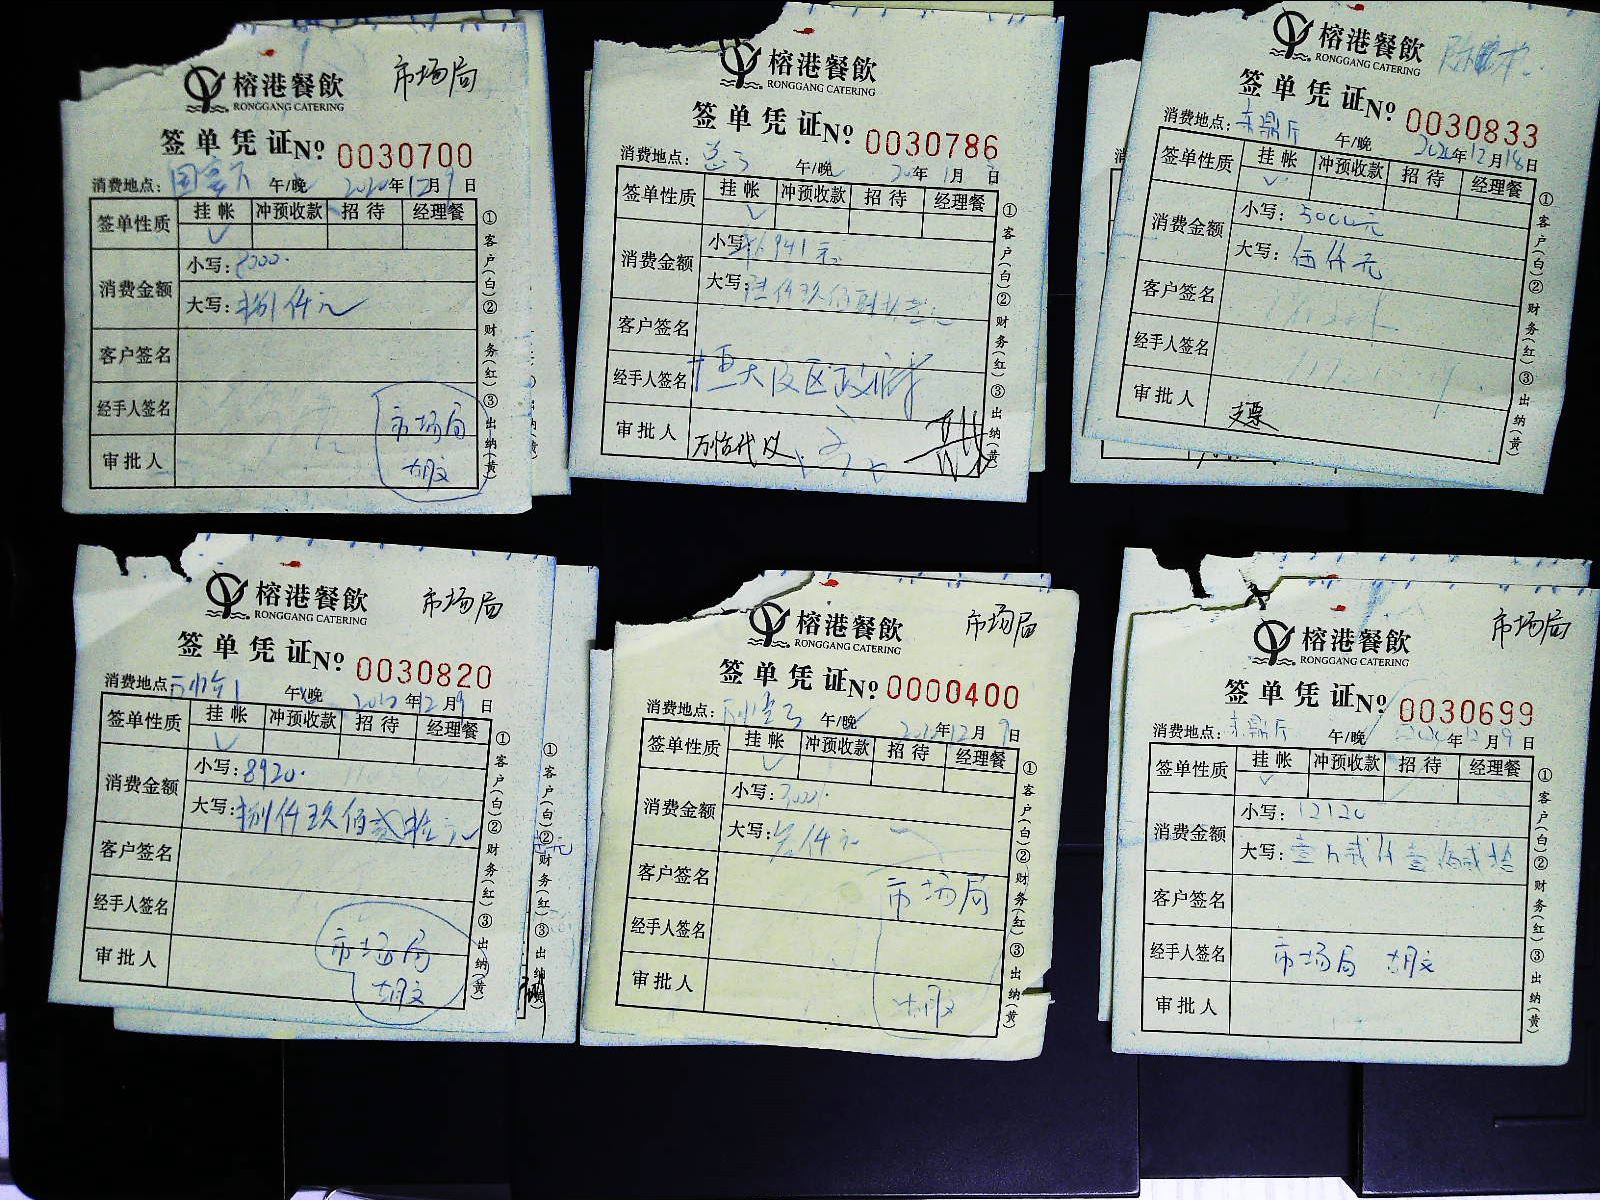 榕港餐飲
RONGGANG CATERING
市场局
签单凭证 Nº 0030700
消费地点：国宴厅 午/晚 2020年12月9日
签单性质 挂帐 冲预收款 招待 经理餐
消费金额
小写：8000.
大写：捌仟元
客户签名
经手人签名
市场局
审批人
胡文
①客户(白)②财务(红)③出纳(黄)
榕港餐飲
RONGGANG CATERING
签单凭证 Nº 0030786
消费地点： 午/晚 20年1月 日
签单性质 挂帐 冲预收款 招待 经理餐
消费金额
小写：6941元
大写：陆仟玖佰肆拾壹元
客户签名
经手人签名 区政府
审批人
①客户(白)②财务(红)③出纳(黄)
榕港餐飲
RONGGANG CATERING
签单凭证 Nº 0030833
消费地点：东鼎厅 午/晚 2020年12月18日
签单性质 挂帐 冲预收款 招待 经理餐
消费金额
小写：5000元
大写：伍仟元
客户签名
经手人签名
审批人 支票
①客户(白)②财务(红)③出纳(黄)
榕港餐飲
RONGGANG CATERING
市场局
签单凭证 Nº 0030820
消费地点 午/晚 2020年12月9日
签单性质 挂帐 冲预收款 招待 经理餐
消费金额
小写：8920.
大写：捌仟玖佰贰拾元
客户签名
经手人签名
市场局
审批人
胡文
①客户(白)②财务(红)③出纳(黄)
榕港餐飲
RONGGANG CATERING
市场局
签单凭证 Nº 0000400
消费地点： 午/晚 2020年12月9日
签单性质 挂帐 冲预收款 招待 经理餐
消费金额
小写：
大写：仟元
客户签名
市场局
经手人签名
审批人
胡文
①客户(白)②财务(红)③出纳(黄)
榕港餐飲
RONGGANG CATERING
市场局
签单凭证 Nº 0030699
消费地点：东鼎厅 午/晚 2020年12月9日
签单性质 挂帐 冲预收款 招待 经理餐
消费金额
小写：12120
大写：壹万贰仟壹佰贰拾
客户签名
经手人签名 市场局 胡文
审批人
①客户(白)②财务(红)③出纳(黄)